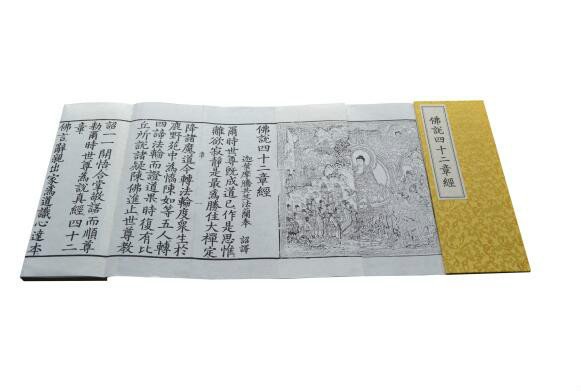 佛說四十二章經
佛說四十二章經
迦葉摩騰共竺法蘭奉 詔譯
爾時世尊既成道已作是思惟
離欲寂靜是最為勝住大禪定
降諸魔道今轉法輪度衆生於
鹿野苑中為憍陳如等五人轉
四諦法輪而證道果時復有比
丘所說諸疑陳佛進止世尊教
詔一一開悟合掌敬諾而順尊
勅爾時世尊為說真經四十二
章
佛言辭親出家為道識心達本